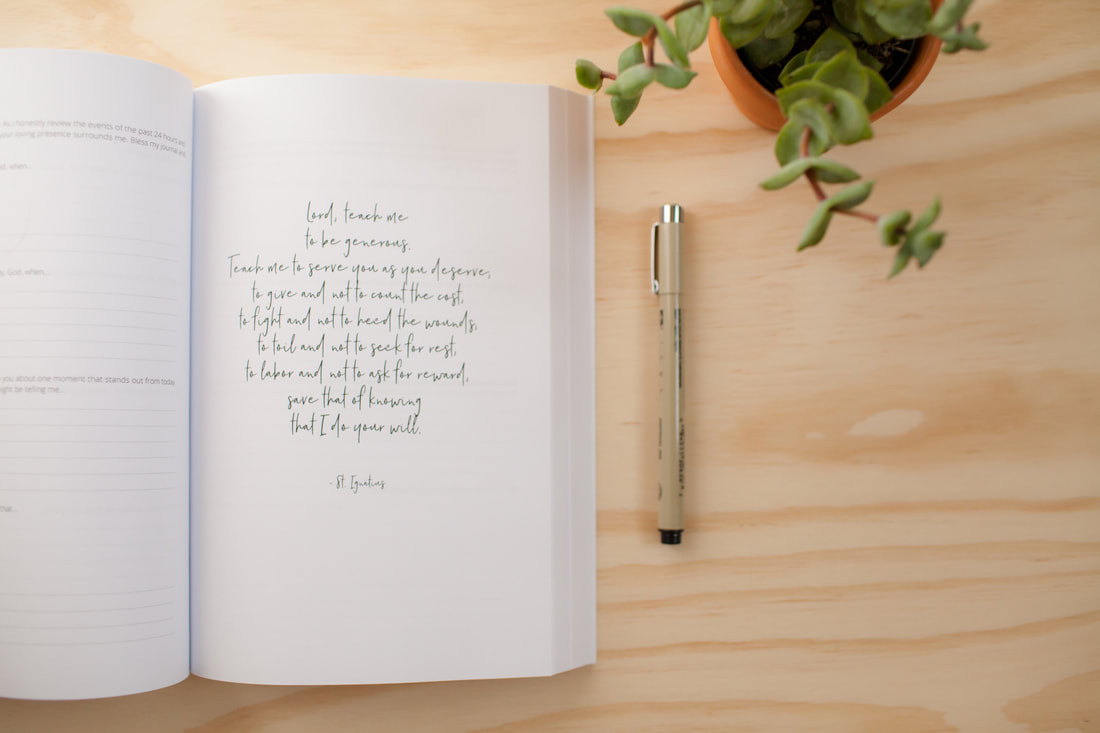 As I honestly review the events of the past 24 hours and
your loving presence surrounds me. Bless my journal and
God, when...
you about one moment that stands out from today
might be telling me...
that...
Lord, teach me
to be generous.
Teach me to serve you as you deserve;
to give and not to count the cost,
to fight and not to heed the wounds,
to toil and not to seek for rest,
to labor and not to ask for reward,
save that of knowing
that I do your will.
- St. Ignatius